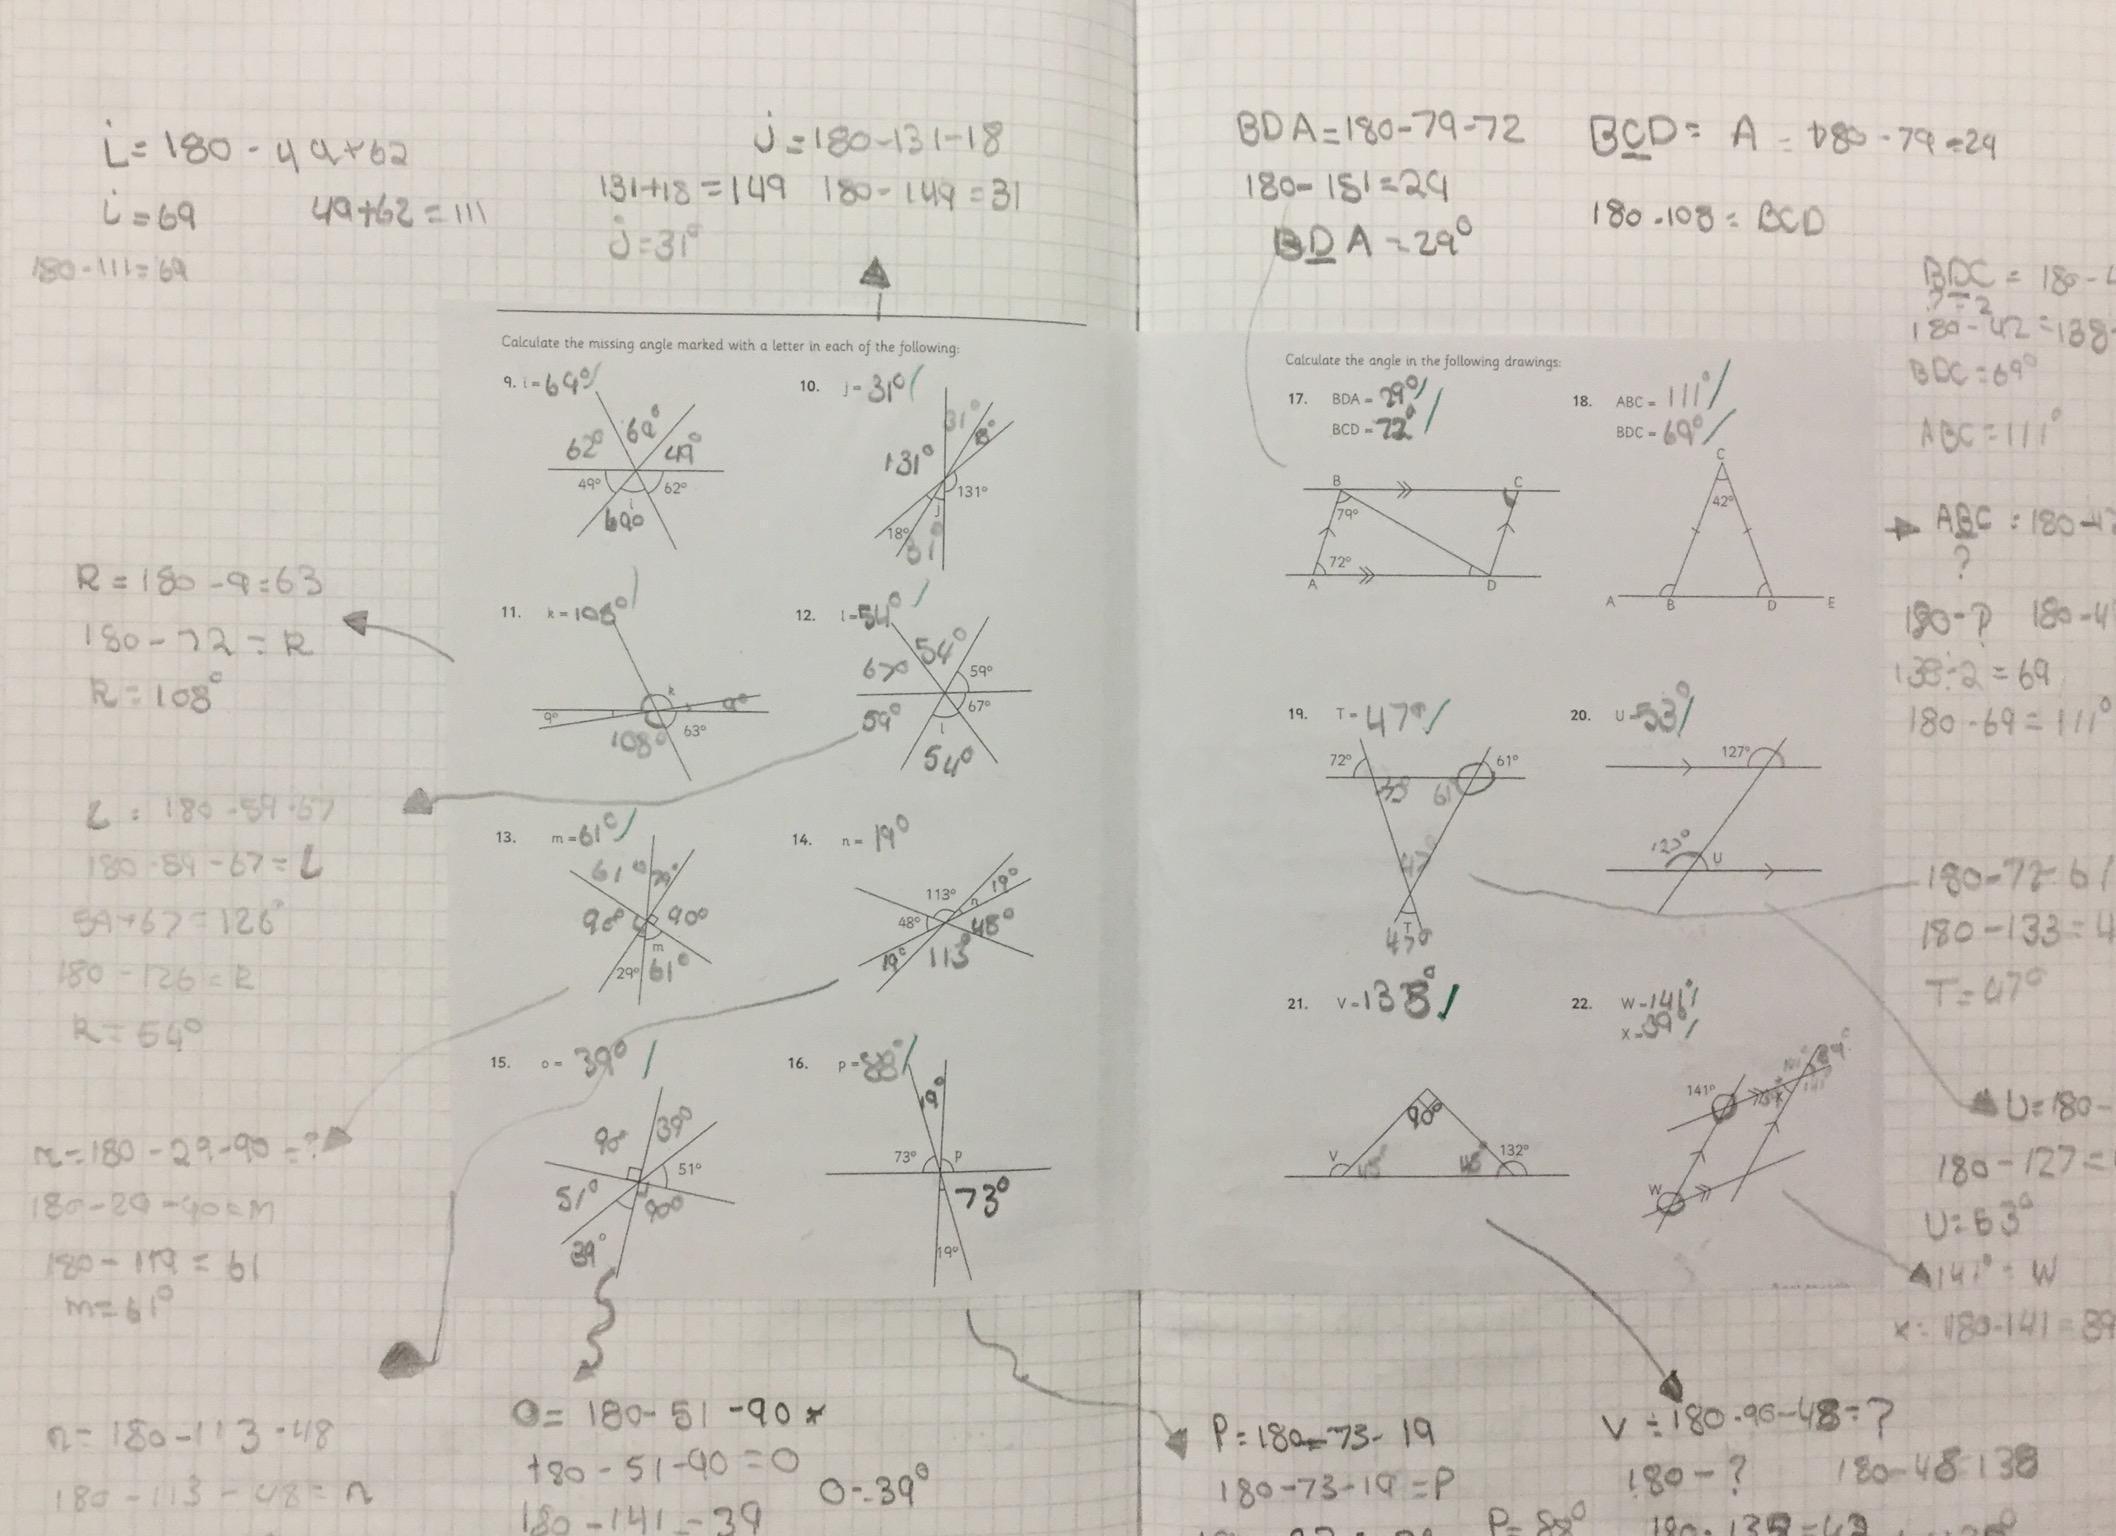 i = 180 - 49+62
i = 69
49+62 = 111
180-111=69
j = 180-131-18
131+18 = 149
180-149 = 31
j = 31°
BDA = 180-79-72
180-151=29
BDA = 29°
BCD = A = 180-79=29
180-108 = BCD
Calculate the missing angle marked with a letter in each of the following:
9. i = 69°
62°
69°
49°
49°
62°
i
69°
10. j = 31°
31°
131°
131°
j
18°
31°
11. k = 108°
k
9°
9°
108°
63°
12. l = 54°
54°
67°
59°
59°
67°
l
54°
13. m = 61°
61°
29°
90°
90°
m
29°
61°
14. n = 19°
113°
19°
48°
n
48°
19°
113°
15. o = 39°
90°
39°
51°
51°
90°
39°
16. p = 88°
19°
73°
P
73°
19°
R = 180-9=63
180-72 = R
R = 108°
L = 180-59-67
180-59-67 = L
59+67=126°
180-126 = R
R = 54°
m = 180-29-90 = ?
180-29-90=m
180-119 = 61
m = 61°
n = 180-113-48
180-113-48 = n
O = 180-51-90
180-51-90 = O
O = 39°
180-141 = 39
Calculate the angle in the following drawings:
17. BDA = 29°
BCD = 72°
B
C
79°
72°
A
D
18. ABC = 111°
BDC = 69°
C
42°
A
B
D
E
19. T = 47°
72°
61°
61
T
47°
20. U = 53°
127°
U
21. V = 138°
90°
V
48°
132°
22. W = 141°
X = 39°
141°
39°
W
BDC =
180-42=138
BDC=69°
ABC=111°
ABC
?
180-?
138÷2=69
180-69=111°
180-72-61
180-133=4
T=47°
U=180-
180-127=
U=53°
141° = W
x = 180-141=39
P = 180-73-19
180-73-19 = P
P = 88°
V = 180-90-48=?
180-?
180-48 138